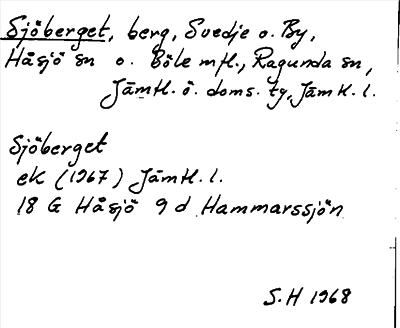 Sjöberget, berg, Svedje o. By,
Håsjö sn o. Böle mfl., Ragunda sn,
Jämtl. ö. doms. tg, Jämtl. l.
Sjöberget
ek (1967) Jämtl. l.
18 G Håsjö 9 d Hammarssjön
S.H 1968